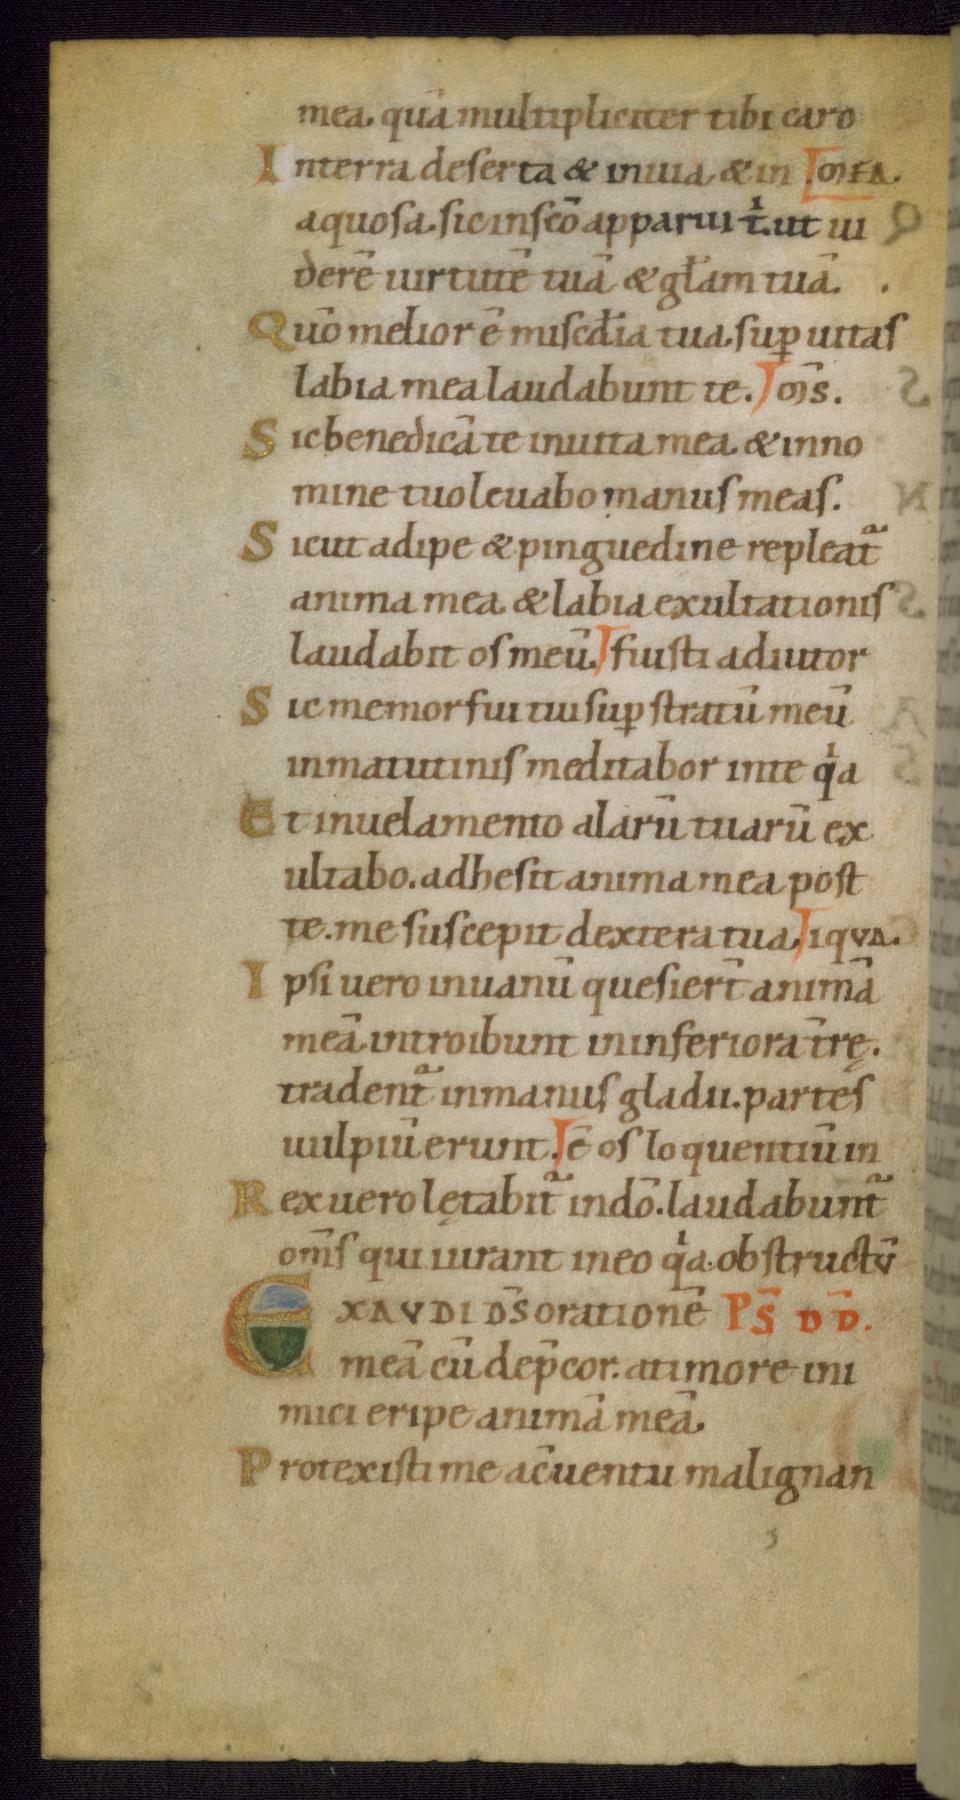 mea. quā multipliciter tibi caro
In terra deserta & inuia. & in mea.
aquosa. sic in sc̄o apparui t̄. ut ui
derē uirtutē tuā & gl̄am tuā.
Quō melior ē misc̄dia tua. sup uitas
labia mea laudabunt te. om̄s.
Sic benedicā te inuita mea. & inno
mine tuo leuabo manus meas.
Sicut adipe & pinguedine repleat̄
anima mea. & labia exultationis
laudabit os meū. fuisti adiutor
Sic memor fui tui sup stratū meū
in matutinis meditabor inte qa
Et inuelamento alarū tuarū ex
ultabo. adhesit anima mea post
te. me suscepit dextera tua. iqua.
Ipsi uero inuanū quesier̄t animā
meā. introibunt in inferiora t̄rę.
tradent̄ in manus gladii. partes
uulpiū erunt. ē os loquentiū in
Rex uero lętabit̄ indō. laudabunt̄
om̄s qui iurant ineo qa. obstructū
EXAVDI DS̄ orationē PS̄ DD̄.
meā cū dep̄cor. a timore ini
mici eripe animā meā.
Protexisti me ac̄uentu malignan